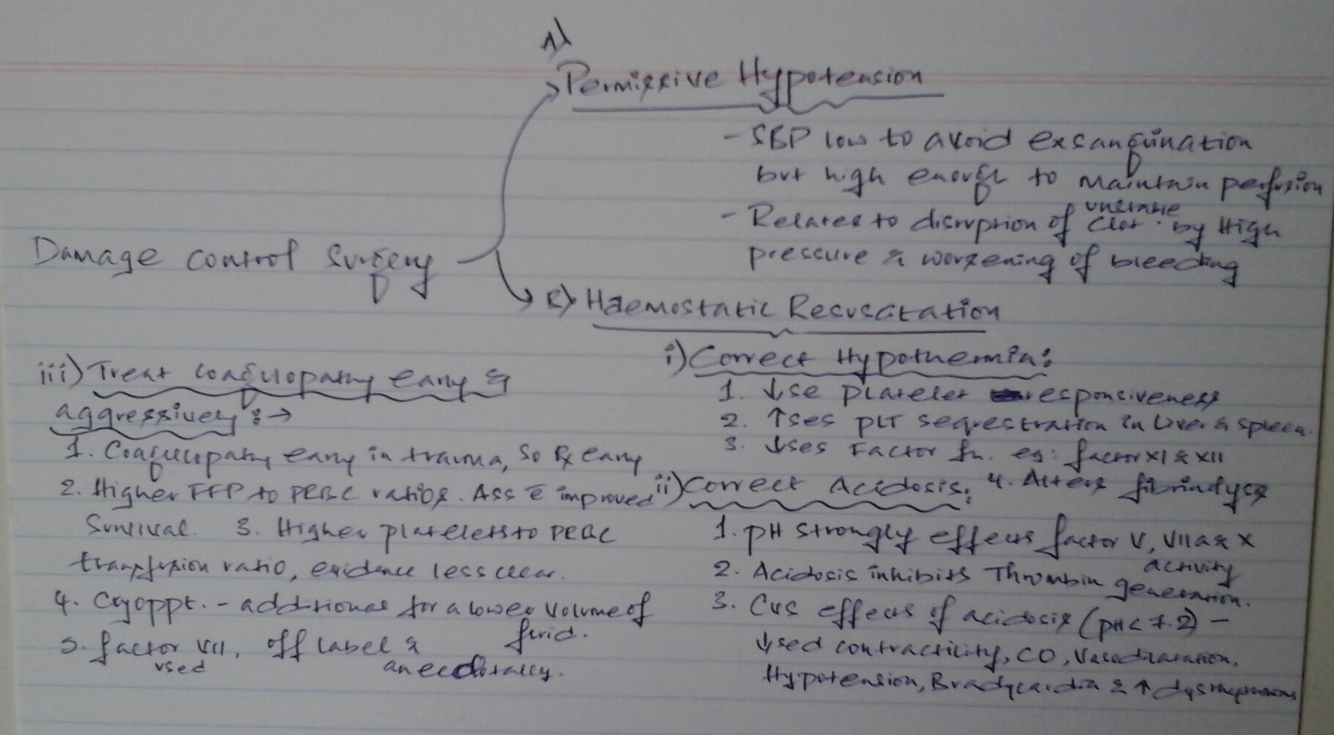 1)
Permissive Hypotension
- SBP low to avoid exsanguination
but high enough to maintain perfusion
- Relates to disruption of unstable clot by High
pressure & worsening of bleeding
Damage control Surgery
2) Haemostatic Resuscitation
i) Correct Hypothermia:
1. ↓se platelet responsiveness
2. ↑ses PLT sequestration in Liver & spleen.
3. ↓ses Factor fn. eg: factor XI & XII
4. Alters fibrinolysis
ii) Correct Acidosis:
1. pH strongly effects factor V, VIIa & X
activity
2. Acidosis inhibits Thrombin generation.
3. CVS effects of acidosis (pH < 7.2) -
↓sed contractility, CO, Vasodilatation,
Hypotension, Bradycardia & ↑ dysrhythmias
iii) Treat coagulopathy early &
aggressively: →
1. Coagulopathy early in trauma, so Rx early
2. Higher FFP to PRBC ratios. Ass c̄ improved
Survival. 3. Higher platelets to PRBC
transfusion ratio, evidence less clear.
4. Cryoppt. - additional for a lower volume of
fluid.
5. factor VII, used off label &
anecdotally.